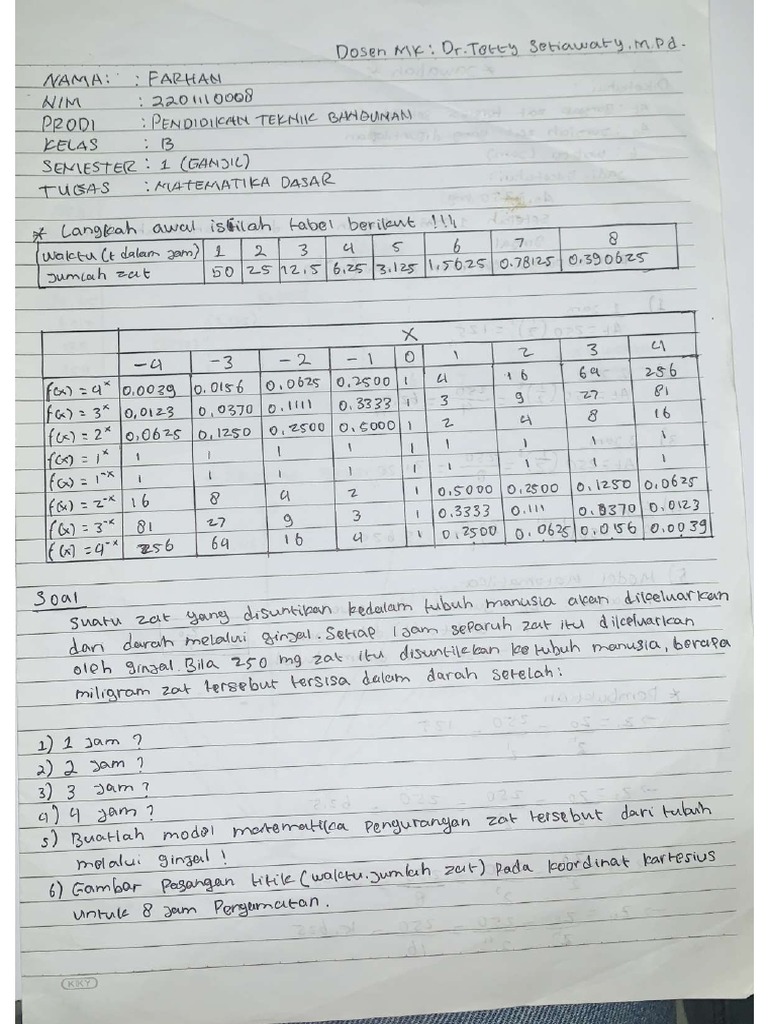 Dosen MK : Dr. Tetty Setiawaty, M.Pd.
NAMA : : FARHAN
NIM : 2201110008
PRODI : PENDIDIKAN TEKNIK BANGUNAN
KELAS : B
SEMESTER : 1 (GANJIL)
TUGAS : MATEMATIKA DASAR
* Langkah awal isilah tabel berikut !!!
Waktu (t dalam jam) 1 2 3 4 5 6 7 8
Jumlah zat 50 25 12.5 6.25 3.125 1.5625 0.78125 0.390625
X
-4 -3 -2 -1 0 1 2 3 4
f(x) = 4^x 0.0039 0.0156 0.0625 0.2500 1 4 16 64 256
f(x) = 3^x 0,0123 0,0370 0.1111 0.3333 1 3 9 27 81
f(x) = 2^x 0,0625 0,1250 0,2500 0,5000 1 2 4 8 16
f(x) = 1^x 1 1 1 1 1 1 1 1 1
f(x) = 1^-x 1 1 1 1 1 1 1 1 1
f(x) = 2^-x 16 8 4 2 1 0,5000 0,2500 0,1250 0,0625
f(x) = 3^-x 81 27 9 3 1 0.3333 0.111 0.0370 0.0123
f(x) = 4^-x 256 64 16 4 1 0,2500 0.0625 0.0156 0.0039
Soal
Suatu zat yang disuntikan kedalam tubuh manusia akan dikeluarkan
dari darah melalui ginjal. Setiap 1 jam separuh zat itu dikeluarkan
oleh ginjal. Bila 250 mg zat itu disuntikkan ke tubuh manusia, berapa
miligram zat tersebut tersisa dalam darah setelah :
1) 1 jam ?
2) 2 jam ?
3) 3 jam ?
4) 4 jam ?
5) Buatlah model matematika pengurangan zat tersebut dari tubuh
melalui ginjal !
6) Gambar pasangan titik (waktu.jumlah zat) pada koordinat kartesius
untuk 8 jam pengamatan.
KKY